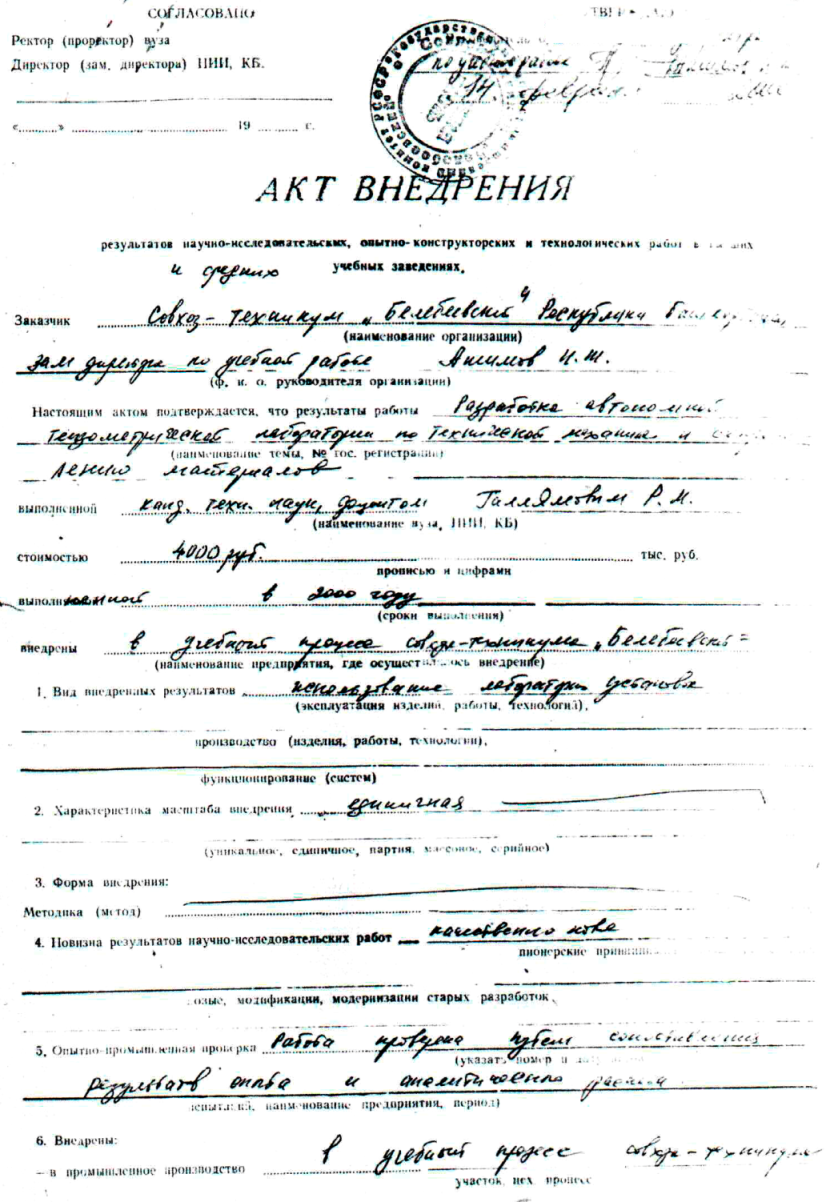 СОГЛАСОВАНО
Ректор (проректор) вуза
Директор (зам. директора) НИИ, КБ.
по уч. работе
14 февраля
«..........» .......................................... 19 ........... г.
АКТ ВНЕДРЕНИЯ
результатов научно-исследовательских, опытно-конструкторских и технологических работ в высших
и средних учебных заведениях.
Заказчик Совхоз-техникум „Белебеевский" Республики
(наименование организации)
зам директора по учебной работе
(ф. и. о. руководителя организации)
Настоящим актом подтверждается, что результаты работы Разработка автономной
тензометрической лаборатории по технической механике и
(наименование темы, № гос. регистрации)
лению материалов
выполненной канд. техн. наук, доцентом Галлямовым Р. М.
(наименование вуза, НИИ, КБ)
стоимостью 4000 руб. тыс. руб.
прописью и цифрами
выполненной в 2000 году
(сроки выполнения)
внедрены в учебный процесс совхоз-техникума „Белебеевский"
(наименование предприятия, где осуществлялось внедрение)
1. Вид внедренных результатов использование лаборатории установок
(эксплуатация изделий, работы, технологий),
производство (изделия, работы, технологии),
функционирование (систем)
2. Характеристика масштаба внедрения единичная
(уникальное, единичное, партия, массовое, серийное)
3. Форма внедрения:
Методика (метод)
4. Новизна результатов научно-исследовательских работ качественно нова
пионерские
модификации, модернизации старых разработок.
5. Опытно-промышленная проверка Работа проверена путем сопоставления
(указать номер и дату
результатов опыта и аналитического расчета
испытаний, наименование предприятия, период)
6. Внедрены:
– в промышленное производство в учебный процесс совхоза-техникума
участок, цех, процесс